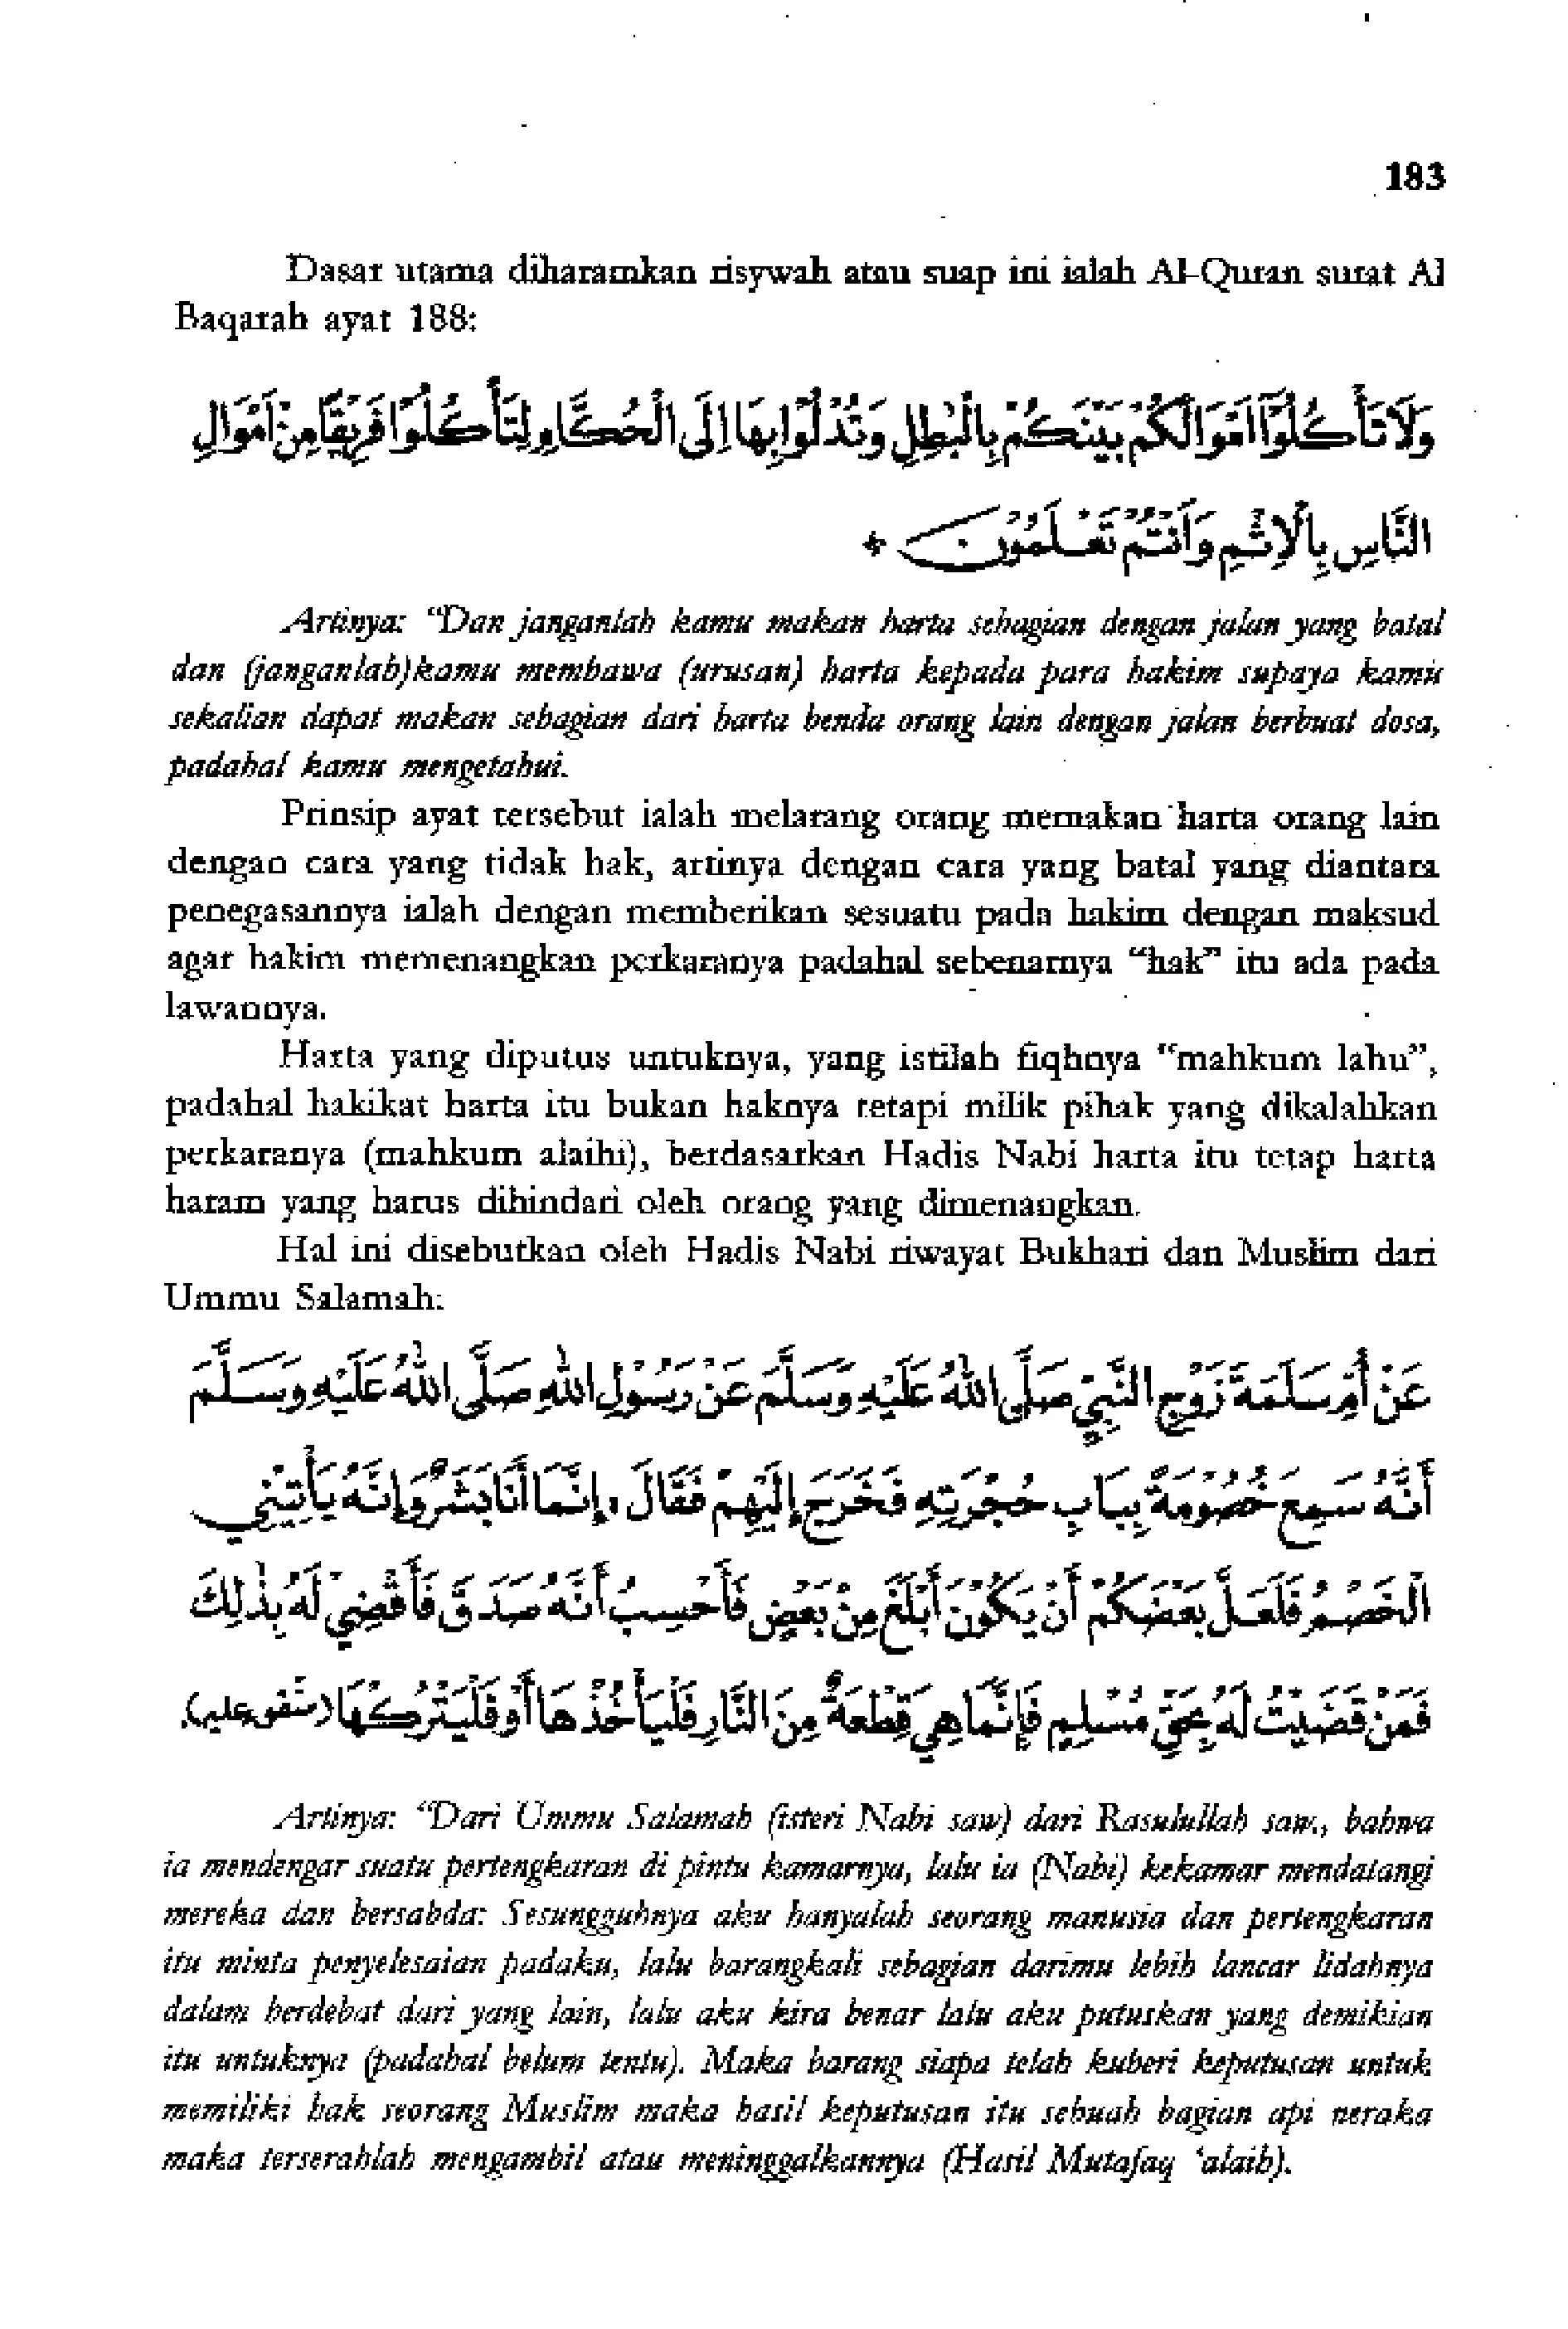 183
Dasar utama diharamkan risywah atau suap ini ialah Al-Quran surat Al
Baqarah ayat 188:
وَلَا تَأْكُلُوْٓا اَمْوَالَكُمْ بَيْنَكُمْ بِالْبَاطِلِ وَتُدْلُوْا بِهَا اِلَى الْحُكَّامِ لِتَأْكُلُوْا فَرِيْقًا مِنْ اَمْوَالِ
النَّاسِ بِالْاِثْمِ وَاَنْتُمْ تَعْلَمُوْنَ ٭
Artinya: “Dan janganlah kamu makan harta sebagian dengan jalan yang batal
dan (janganlah)kamu membawa (urusan) harta kepada para hakim supaya kamu
sekalian dapat makan sebagian dari harta benda orang lain dengan jalan berbuat dosa,
padahal kamu mengetahui.
Prinsip ayat tersebut ialah melarang orang memakan harta orang lain
dengan cara yang tidak hak, artinya dengan cara yang batal yang diantara
penegasannya ialah dengan memberikan sesuatu pada hakim dengan maksud
agar hakim memenangkan perkaranya padahal sebenarnya “hak” itu ada pada
lawannya.
Harta yang diputus untuknya, yang istilah fiqhnya “mahkum lahu”,
padahal hakikat harta itu bukan haknya tetapi milik pihak yang dikalahkan
perkaranya (mahkum alaihi), berdasarkan Hadis Nabi harta itu tetap harta
haram yang harus dihindari oleh orang yang dimenangkan.
Hal ini disebutkan oleh Hadis Nabi riwayat Bukhari dan Muslim dari
Ummu Salamah:
عَنْ أُمِّ سَلَمَةَ زَوْجِ النَّبِيِّ صَلَّى اللهُ عَلَيْهِ وَسَلَّمَ عَنْ رَسُوْلِ اللهِ صَلَّى اللهُ عَلَيْهِ وَسَلَّمَ
أَنَّهُ سَمِعَ خُصُوْمَةً بِبَابِ حُجْرَتِهِ فَخَرَجَ إِلَيْهِمْ فَقَالَ ، إِنَّمَا أَنَا بَشَرٌ وَإِنَّهُ يَأْتِيْنِي
الْخَصْمُ فَلَعَلَّ بَعْضَكُمْ أَنْ يَكُوْنَ أَبْلَغَ مِنْ بَعْضٍ فَأَحْسِبُ أَنَّهُ صَدَقَ فَأَقْضِي لَهُ بِذٰلِكَ
فَمَنْ قَضَيْتُ لَهُ بِحَقِّ مُسْلِمٍ فَإِنَّمَا هِيَ قِطْعَةٌ مِنَ النَّارِ فَلْيَأْخُذْهَا أَوْ فَلْيَتْرُكْهَا (متفق عليه).
Artinya: “Dari Ummu Salamah (isteri Nabi saw) dari Rasulullah saw., bahwa
ia mendengar suatu pertengkaran di pintu kamarnya, lalu ia (Nabi) kekamar mendatangi
mereka dan bersabda: Sesungguhnya aku hanyalah seorang manusia dan pertengkaran
itu minta penyelesaian padaku, lalu barangkali sebagian darimu lebih lancar lidahnya
dalam berdebat dari yang lain, lalu aku kira benar lalu aku putuskan yang demikian
itu untuknya (padahal belum tentu). Maka barang siapa telah kuberi keputusan untuk
memiliki hak seorang Muslim maka hasil keputusan itu sebuah bagian api neraka
maka terserahlah mengambil atau meninggalkannya (Hasil Mutafaq ‘alaih).